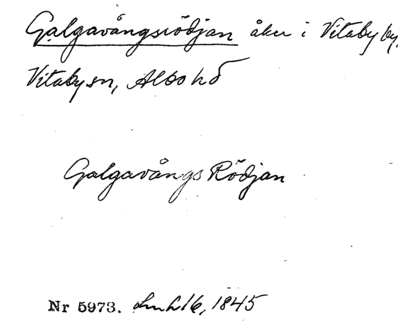 Galgavångsrödjan åker i Vitaby by,
Vitaby sn, Albo hd
Galgavångs Rödjan
Nr 5973. LmL 16, 1845